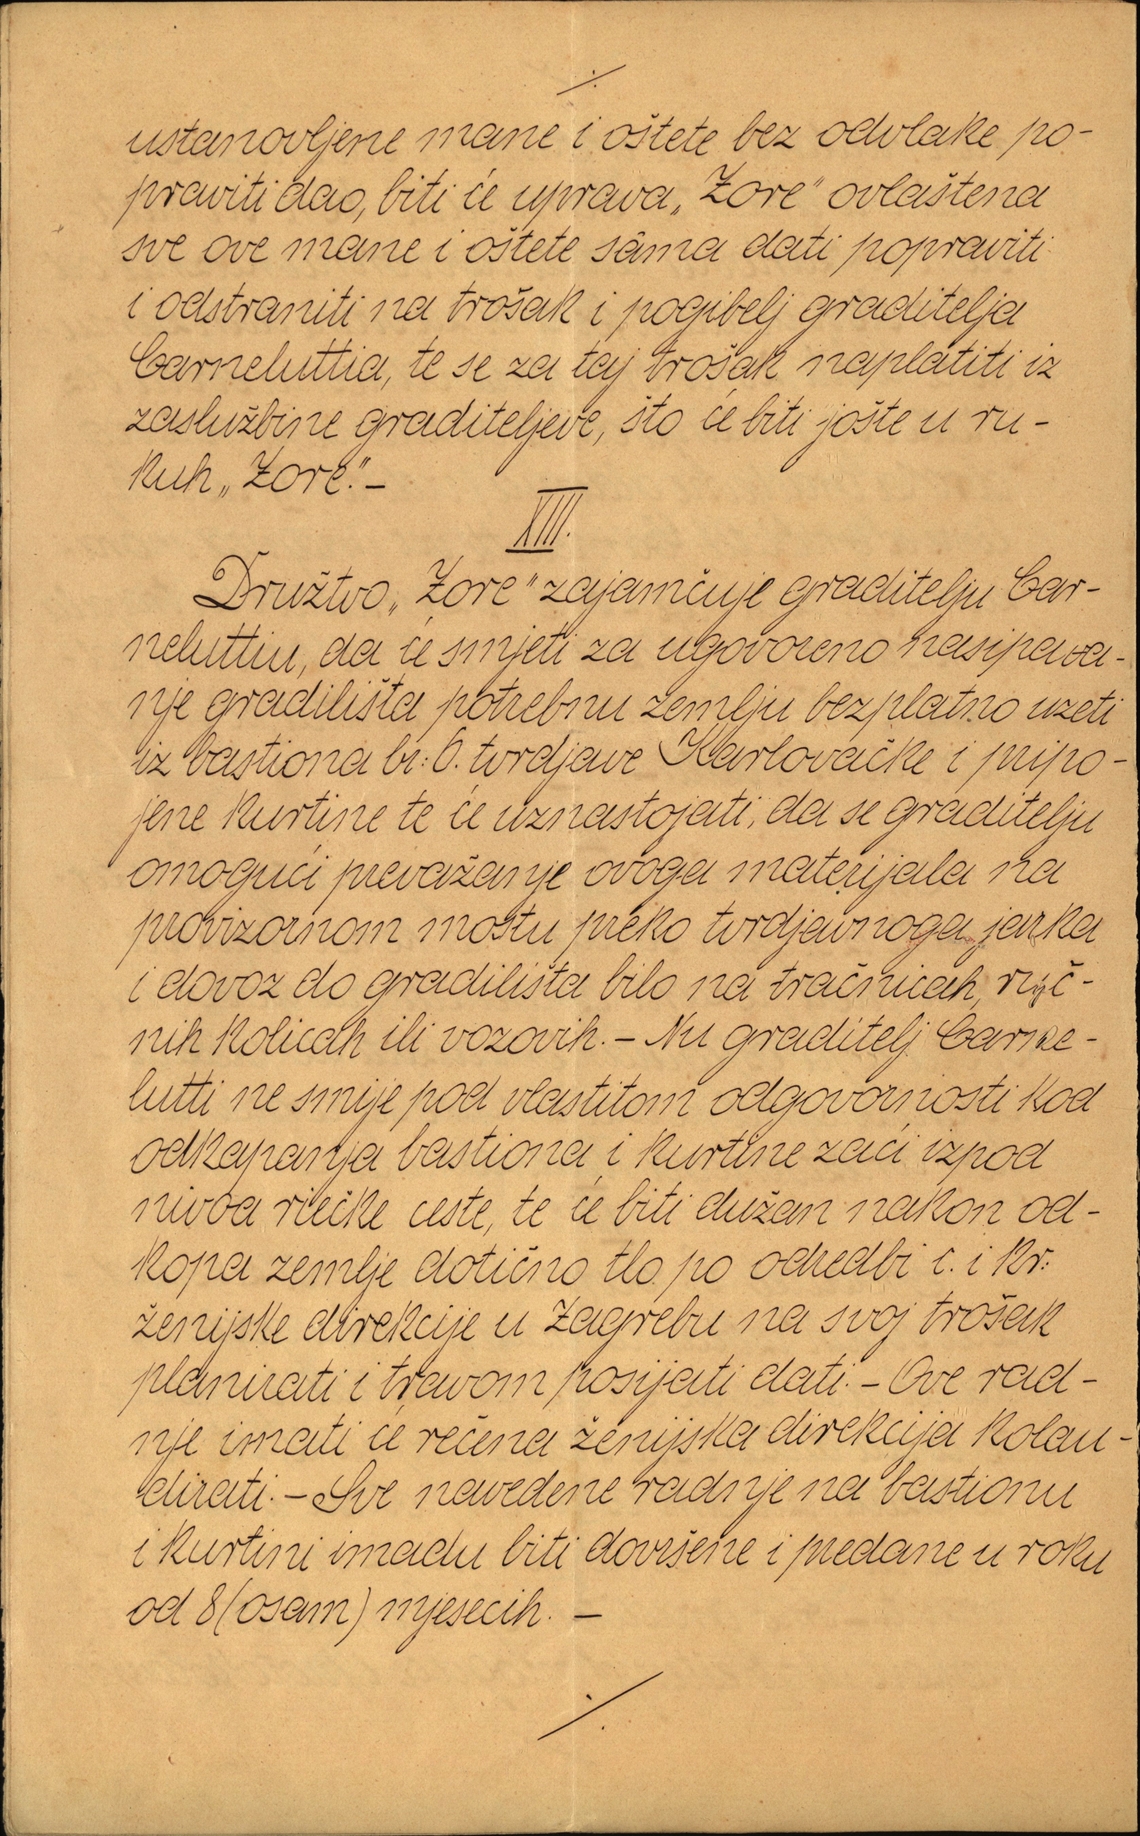 ./.
ustanovljene mane i oštete bez odvlake po-
praviti dao, biti će uprava „Zore" ovlaštena
sve ove mane i oštete sâma dati popraviti
i odstraniti na trošak i pogibelj graditelja
Carneluttia, te se za taj trošak naplatiti iz
zaslužbine graditeljeve, što će biti jošte u ru-
kuh „Zore". –
XIII.
Družtvo „Zore" zajamčuje graditelju Car-
neluttiu, da će smjeti za ugovoreno nasipava-
nje gradilišta potrebnu zemlju bezplatno uzeti
iz bastiona br: 6. tvrdjave Karlovačke i pripo-
jene kurtine te će uznastojati, da se graditelju
omogući prevažanje ovoga materijala na
provizornom mostu preko tvrdjavnoga jarka
i dovoz do gradilišta bilo na tračnicah, ruč-
nih kolicah ili vozovih. – Nu graditelj Carne-
lutti ne smije pod vlastitom odgovornosti kod
odkapanja bastiona i kurtine zaći izpod
nivoa riečke ceste, te će biti dužan nakon od-
kopa zemlje dotično tlo po odredbi c. i kr:
ženijske direkcije u Zagrebu na svoj trošak
planirati i travom posijati dati. – Ove rad-
nje imati će rečena ženijska direkcija kolau-
dirati. – Sve navedene radnje na bastionu
i kurtini imadu biti dovršene i predane u roku
od 8 (osam) mjesecih. –
./.